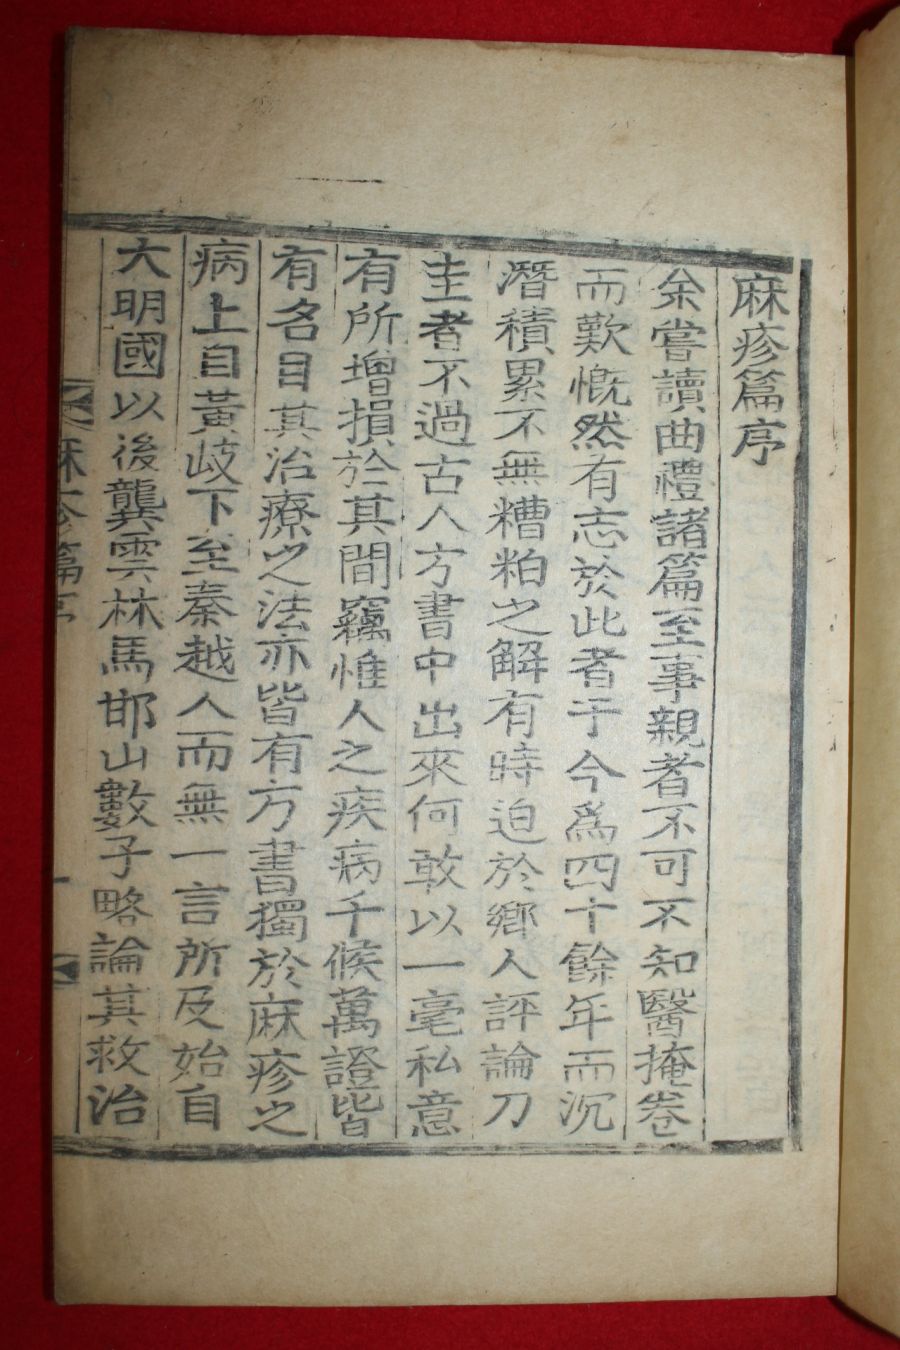 麻疹篇序
余嘗讀曲禮諸篇至事親者不可不知醫掩卷
而歎慨然有志於此者于今爲四十餘年而沉
潛積累不無糟粕之解有時迫於鄕人評論刀
圭者不過古人方書中出來何敢以一毫私意
有所增損於其間竊惟人之疾病千候萬證皆
有名目其治療之法亦皆有方書獨於麻疹之
病上自黃岐下至秦越人而無一言所及始自
大明國以後龔雲林馬邯山數子略論其救治
麻疹篇序
一